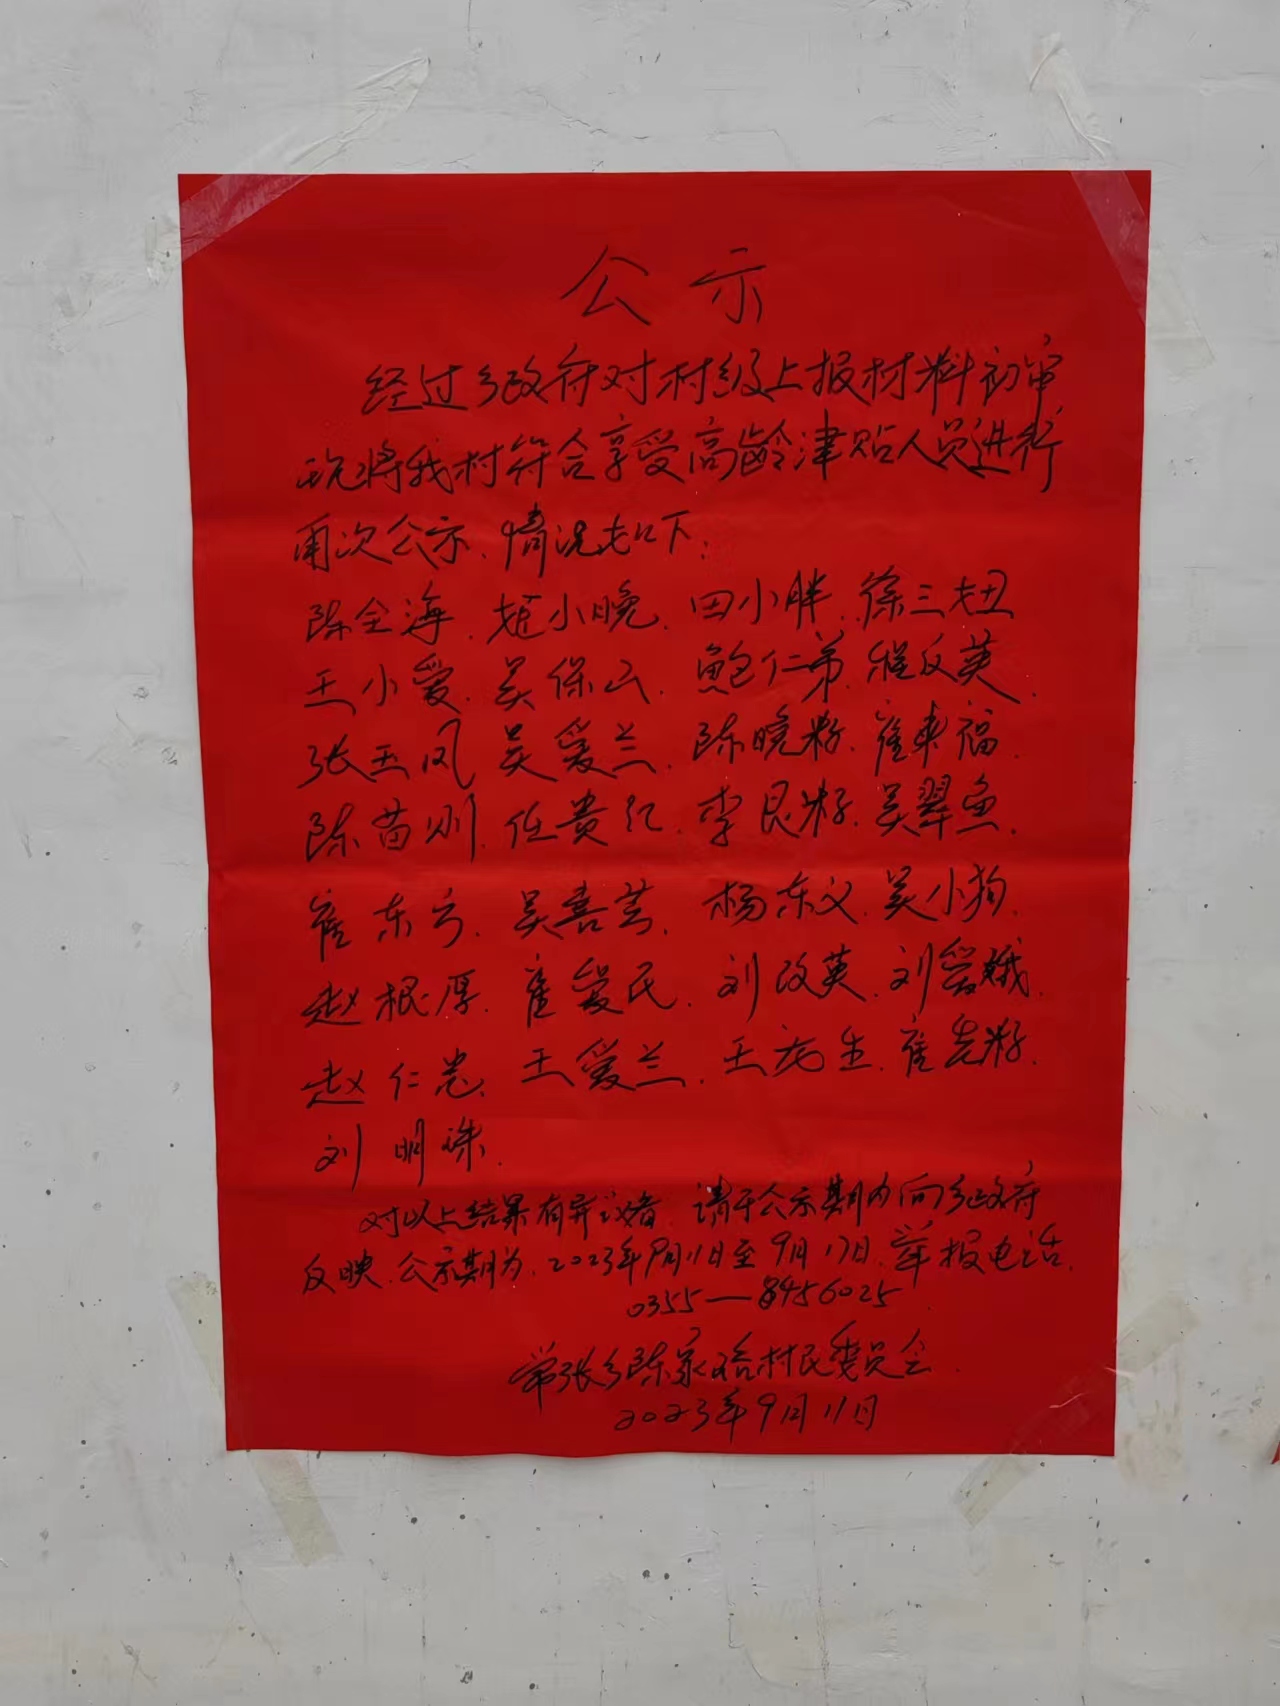 公示
经过乡政府对村级上报材料初审
现将我村符合享受高龄津贴人员进行
再次公示、情况如下:
陈全海、赵小晚、田小胖、徐三妞
王小爱、吴保云、鲍仁弟、程反英、
张玉凤 吴爱兰、陈晚籽、崔来福、
陈苗则、任贵红、李艮籽、吴翠鱼、
崔东方、吴喜芸、杨东义、吴小狗、
赵根厚、崔爱民、刘改英、刘爱娥、
赵仁光、王爱兰、王虎生、崔先籽、
刘明珠、
对以上结果有异议者、请于公示期内向乡政府
反映、公示期为、2023年9月11日至9月17日、举报电话、
0355—8456025
常张乡陈家峪村民委员会、
2023年9月11日